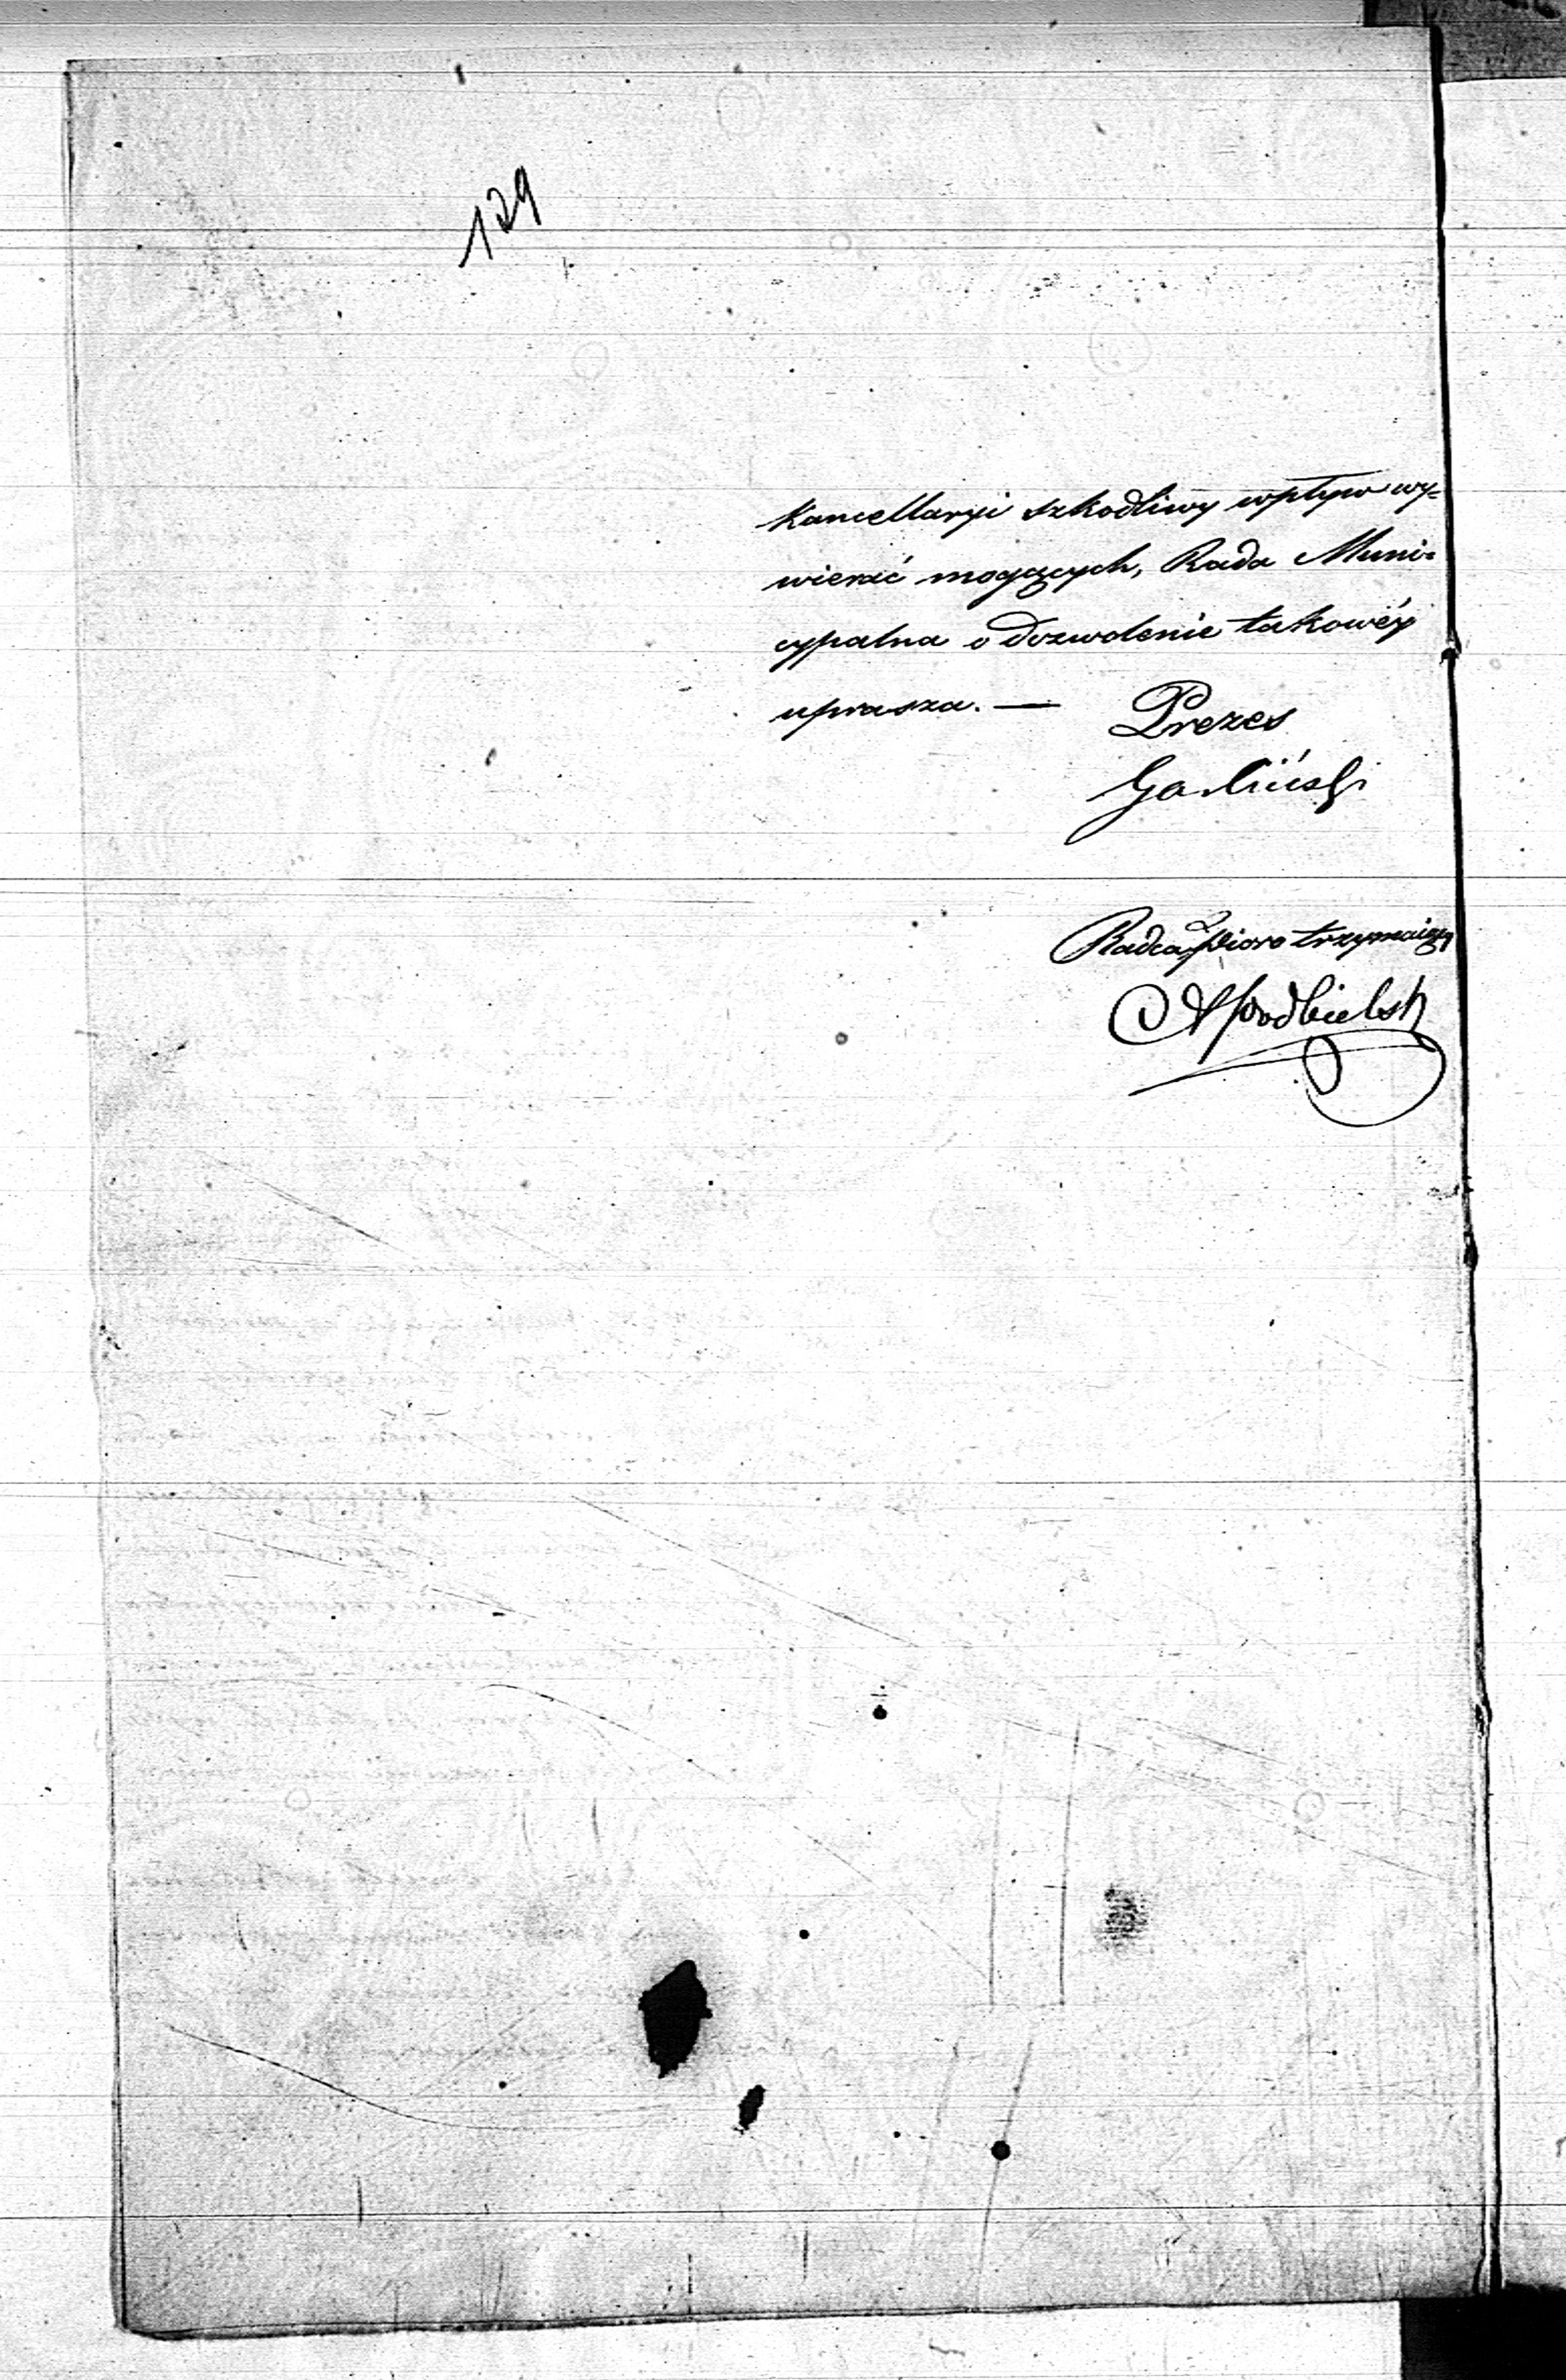 129
Kancellaryi szkodliwy wpływ wy=
wierać mogących, Rada Muni=
cypalna o dozwolenie takowéy
uprasza. —
Prezes
Garliński
Radca Pióro trzymaiący
A Podbielsk